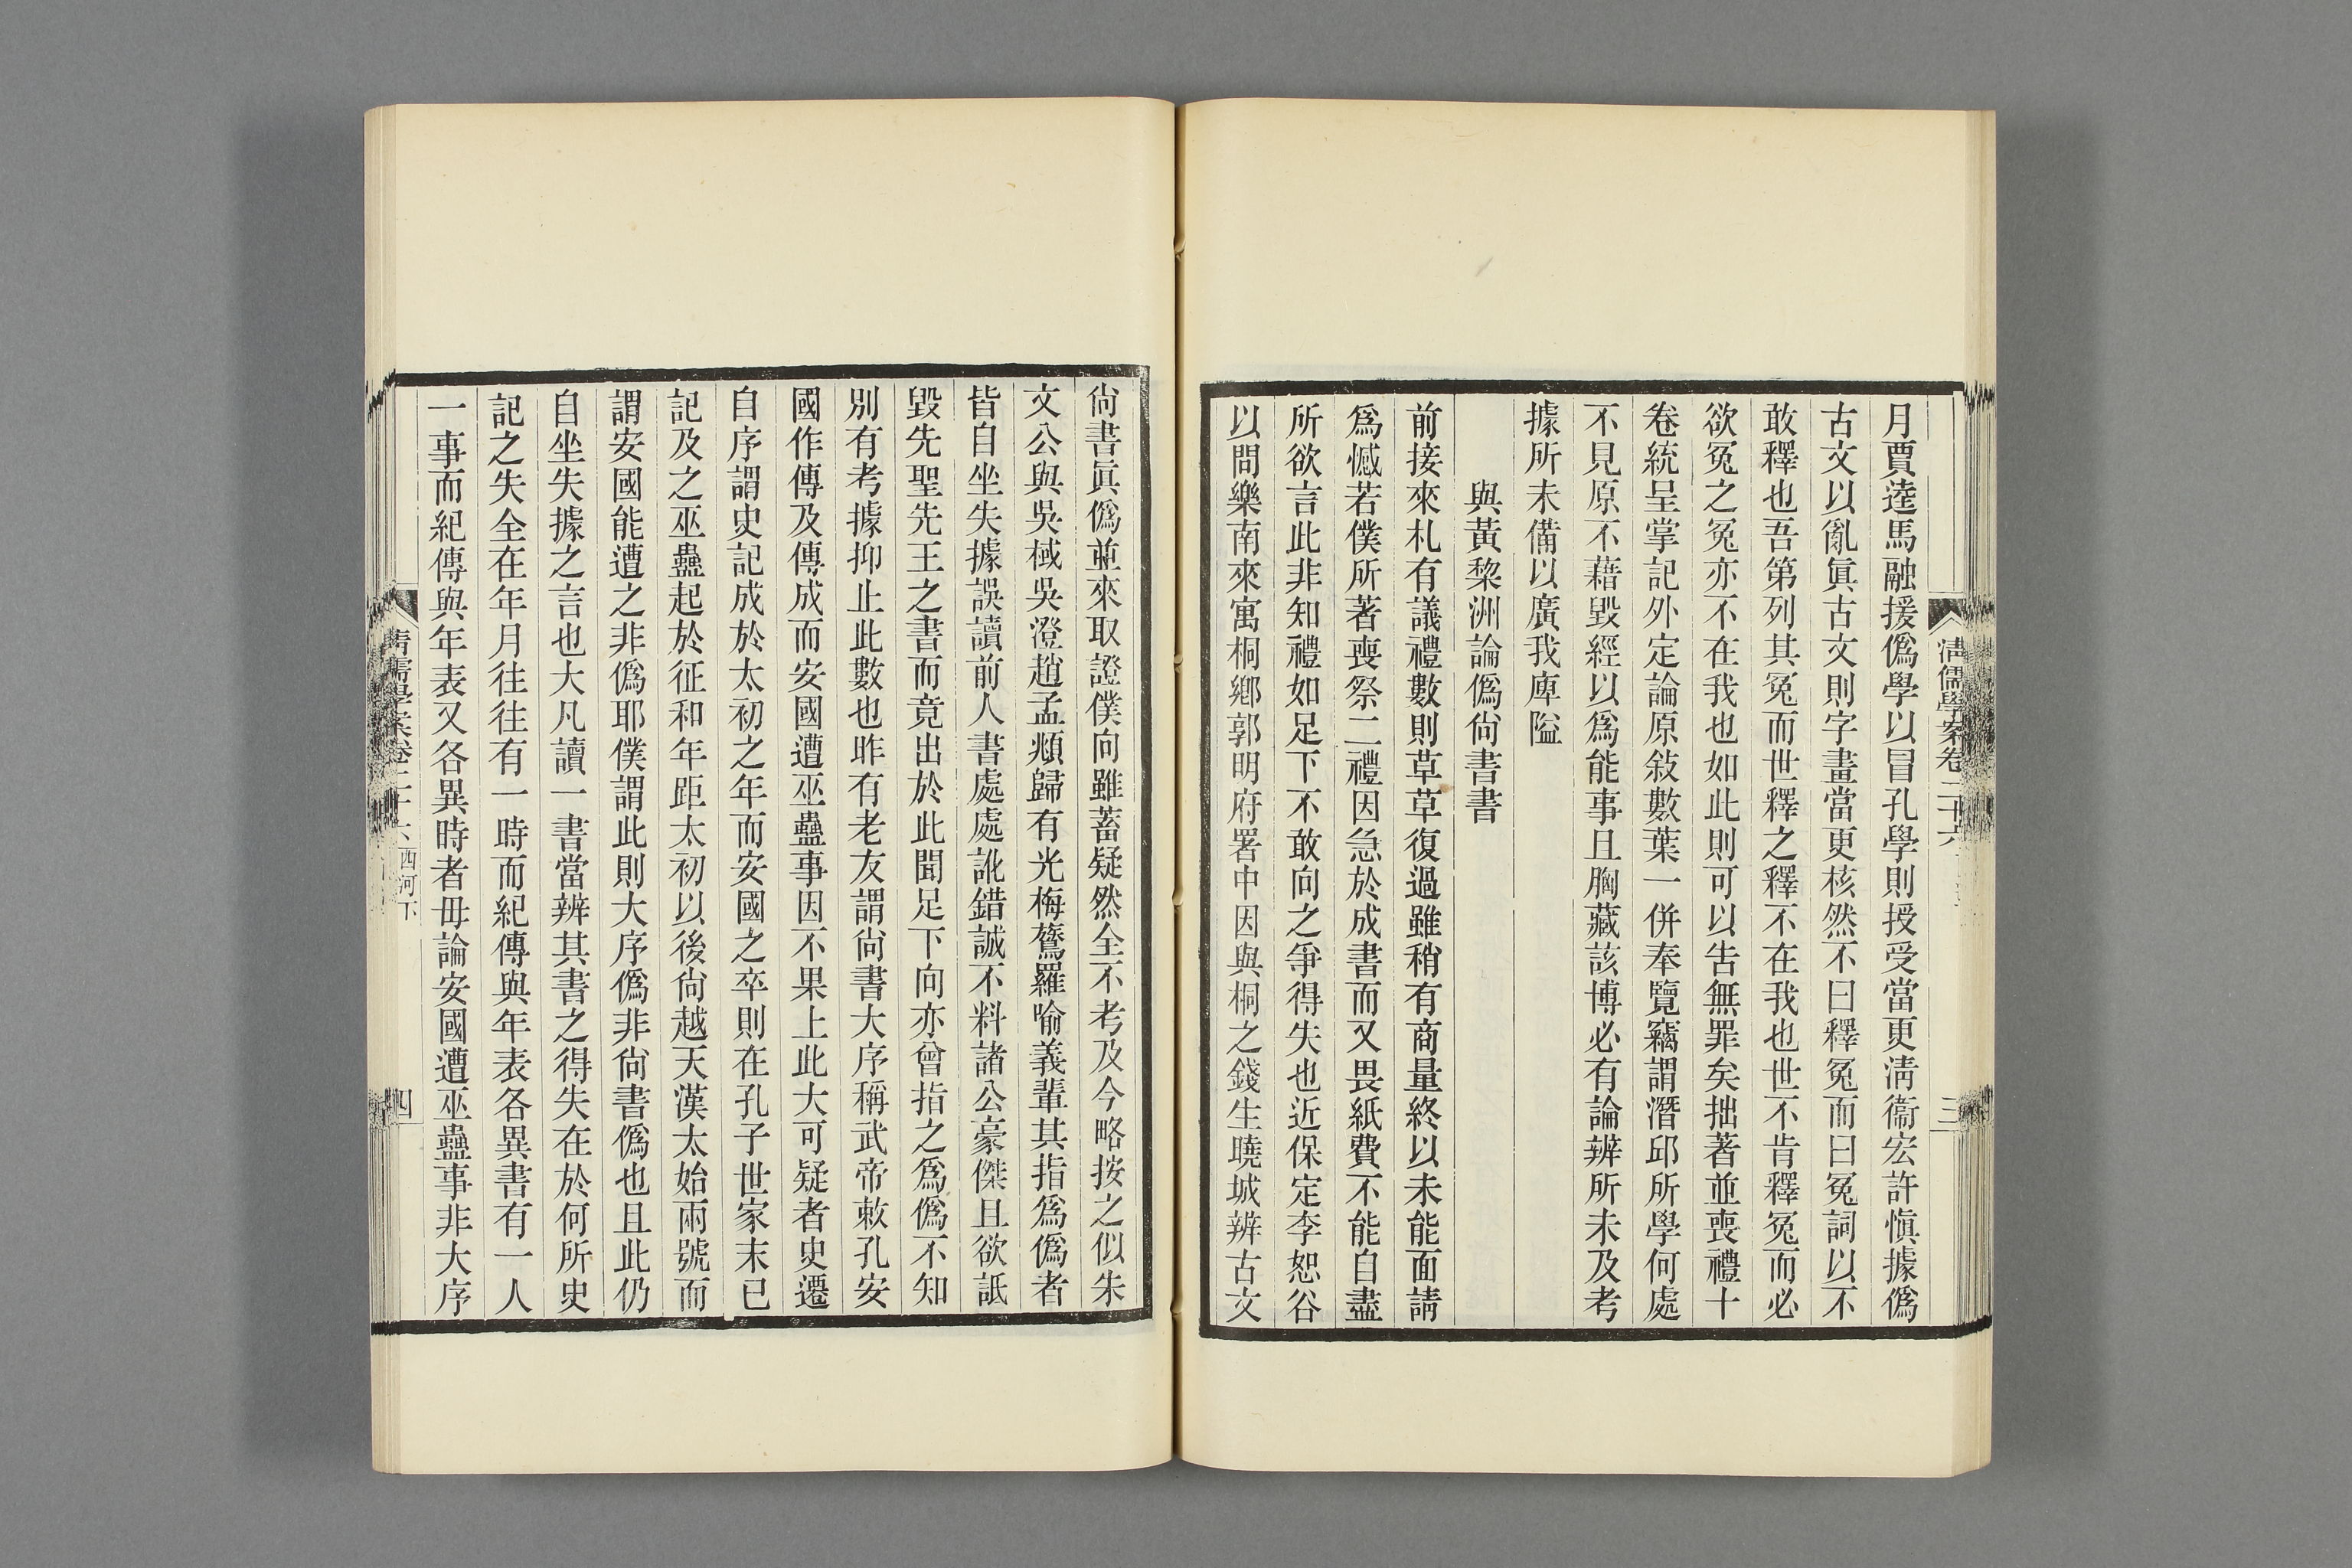 清儒學案卷二十六
三
月賈逵馬融援僞學以冒孔學則授受當更淸衞宏許愼據僞
古文以亂眞古文則字畫當更核然不曰釋冤而曰冤詞以不
敢釋也吾第列其冤而世釋之釋不在我也世不肯釋冤而必
欲冤之冤亦不在我也如此則可以吿無罪矣拙著並喪禮十
卷統呈掌記外定論原敍數葉一併奉覽竊謂潛邱所學何處
不見原不藉毀經以爲能事且胸藏該博必有論辨所未及考
據所未備以廣我庳隘
與黃黎洲論僞尙書書
前接來札有議禮數則草草復過雖稍有商量終以未能面請
爲憾若僕所著喪祭二禮因急於成書而又畏紙費不能自盡
所欲言此非知禮如足下不敢向之爭得失也近保定李恕谷
以問樂南來寓桐鄕郭明府署中因與桐之錢生曉城辨古文
尙書眞僞並來取證僕向雖蓄疑然全不考及今略按之似朱
文公與吳棫吳澄趙孟頫歸有光梅鷟羅喻義輩其指爲僞者
皆自坐失據誤讀前人書處處訛錯誠不料諸公豪傑且欲詆
毀先聖先王之書而竟出於此聞足下向亦曾指之爲僞不知
別有考據抑止此數也昨有老友謂尙書大序稱武帝敕孔安
國作傳及傳成而安國遭巫蠱事因不果上此大可疑者史遷
自序謂史記成於太初之年而安國之卒則在孔子世家末已
記及之巫蠱起於征和年距太初以後尙越天漢太始兩號而
謂安國能遭之非僞耶僕謂此則大序僞非尙書僞也且此仍
自坐失據之言也大凡讀一書當辨其書之得失在於何所史
記之失全在年月往往有一時而紀傳與年表各異書有一人
一事而紀傳與年表又各異時者毋論安國遭巫蠱事非大序
清儒學案卷二十六 西河下
四